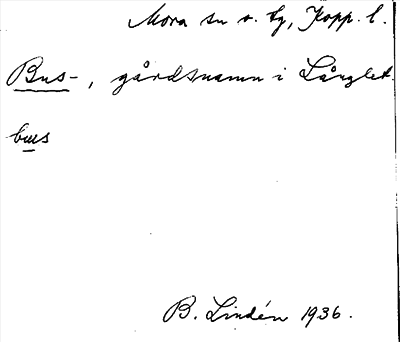 Mora sn o. tg, Kopp. l.
Bus-, gårdsnamn i Långlet.
bus
B. Lindén 1936.